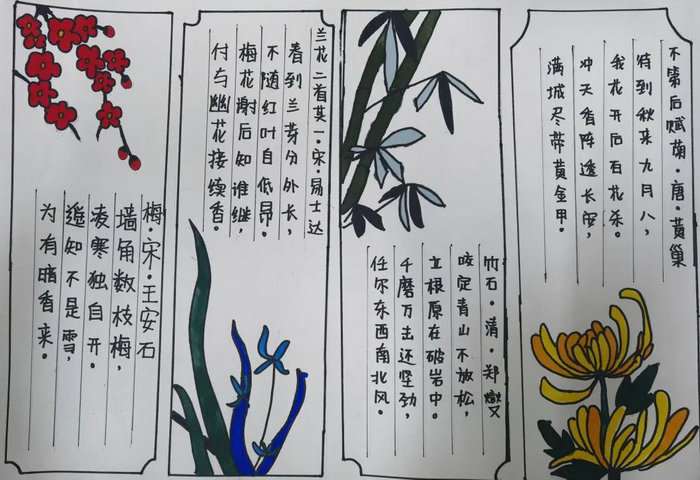 梅·宋·王安石
墙角数枝梅,
凌寒独自开。
遥知不是雪,
为有暗香来。
兰花二首其一·宋·易士达
春到兰芽分外长,
不随红叶自低昂。
梅花谢后知谁继,
付与幽花接续香。
竹石·清·郑燮
咬定青山不放松,
立根原在破岩中。
千磨万击还坚劲,
任尔东西南北风。
不第后赋菊·唐·黄巢
待到秋来九月八,
我花开后百花杀。
冲天香阵透长安,
满城尽带黄金甲。